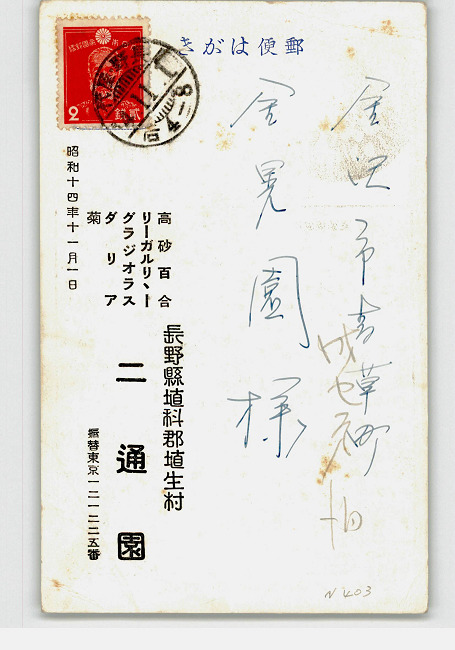 郵便はがき
金沢市吉草町
金晃園様
高砂百合
リーガルリヽー
グラジオラス
ダリア
菊
昭和十四年十一月一日
長野縣埴科郡埴生村
二通園
振替東京一二一二二五番
2
N 403